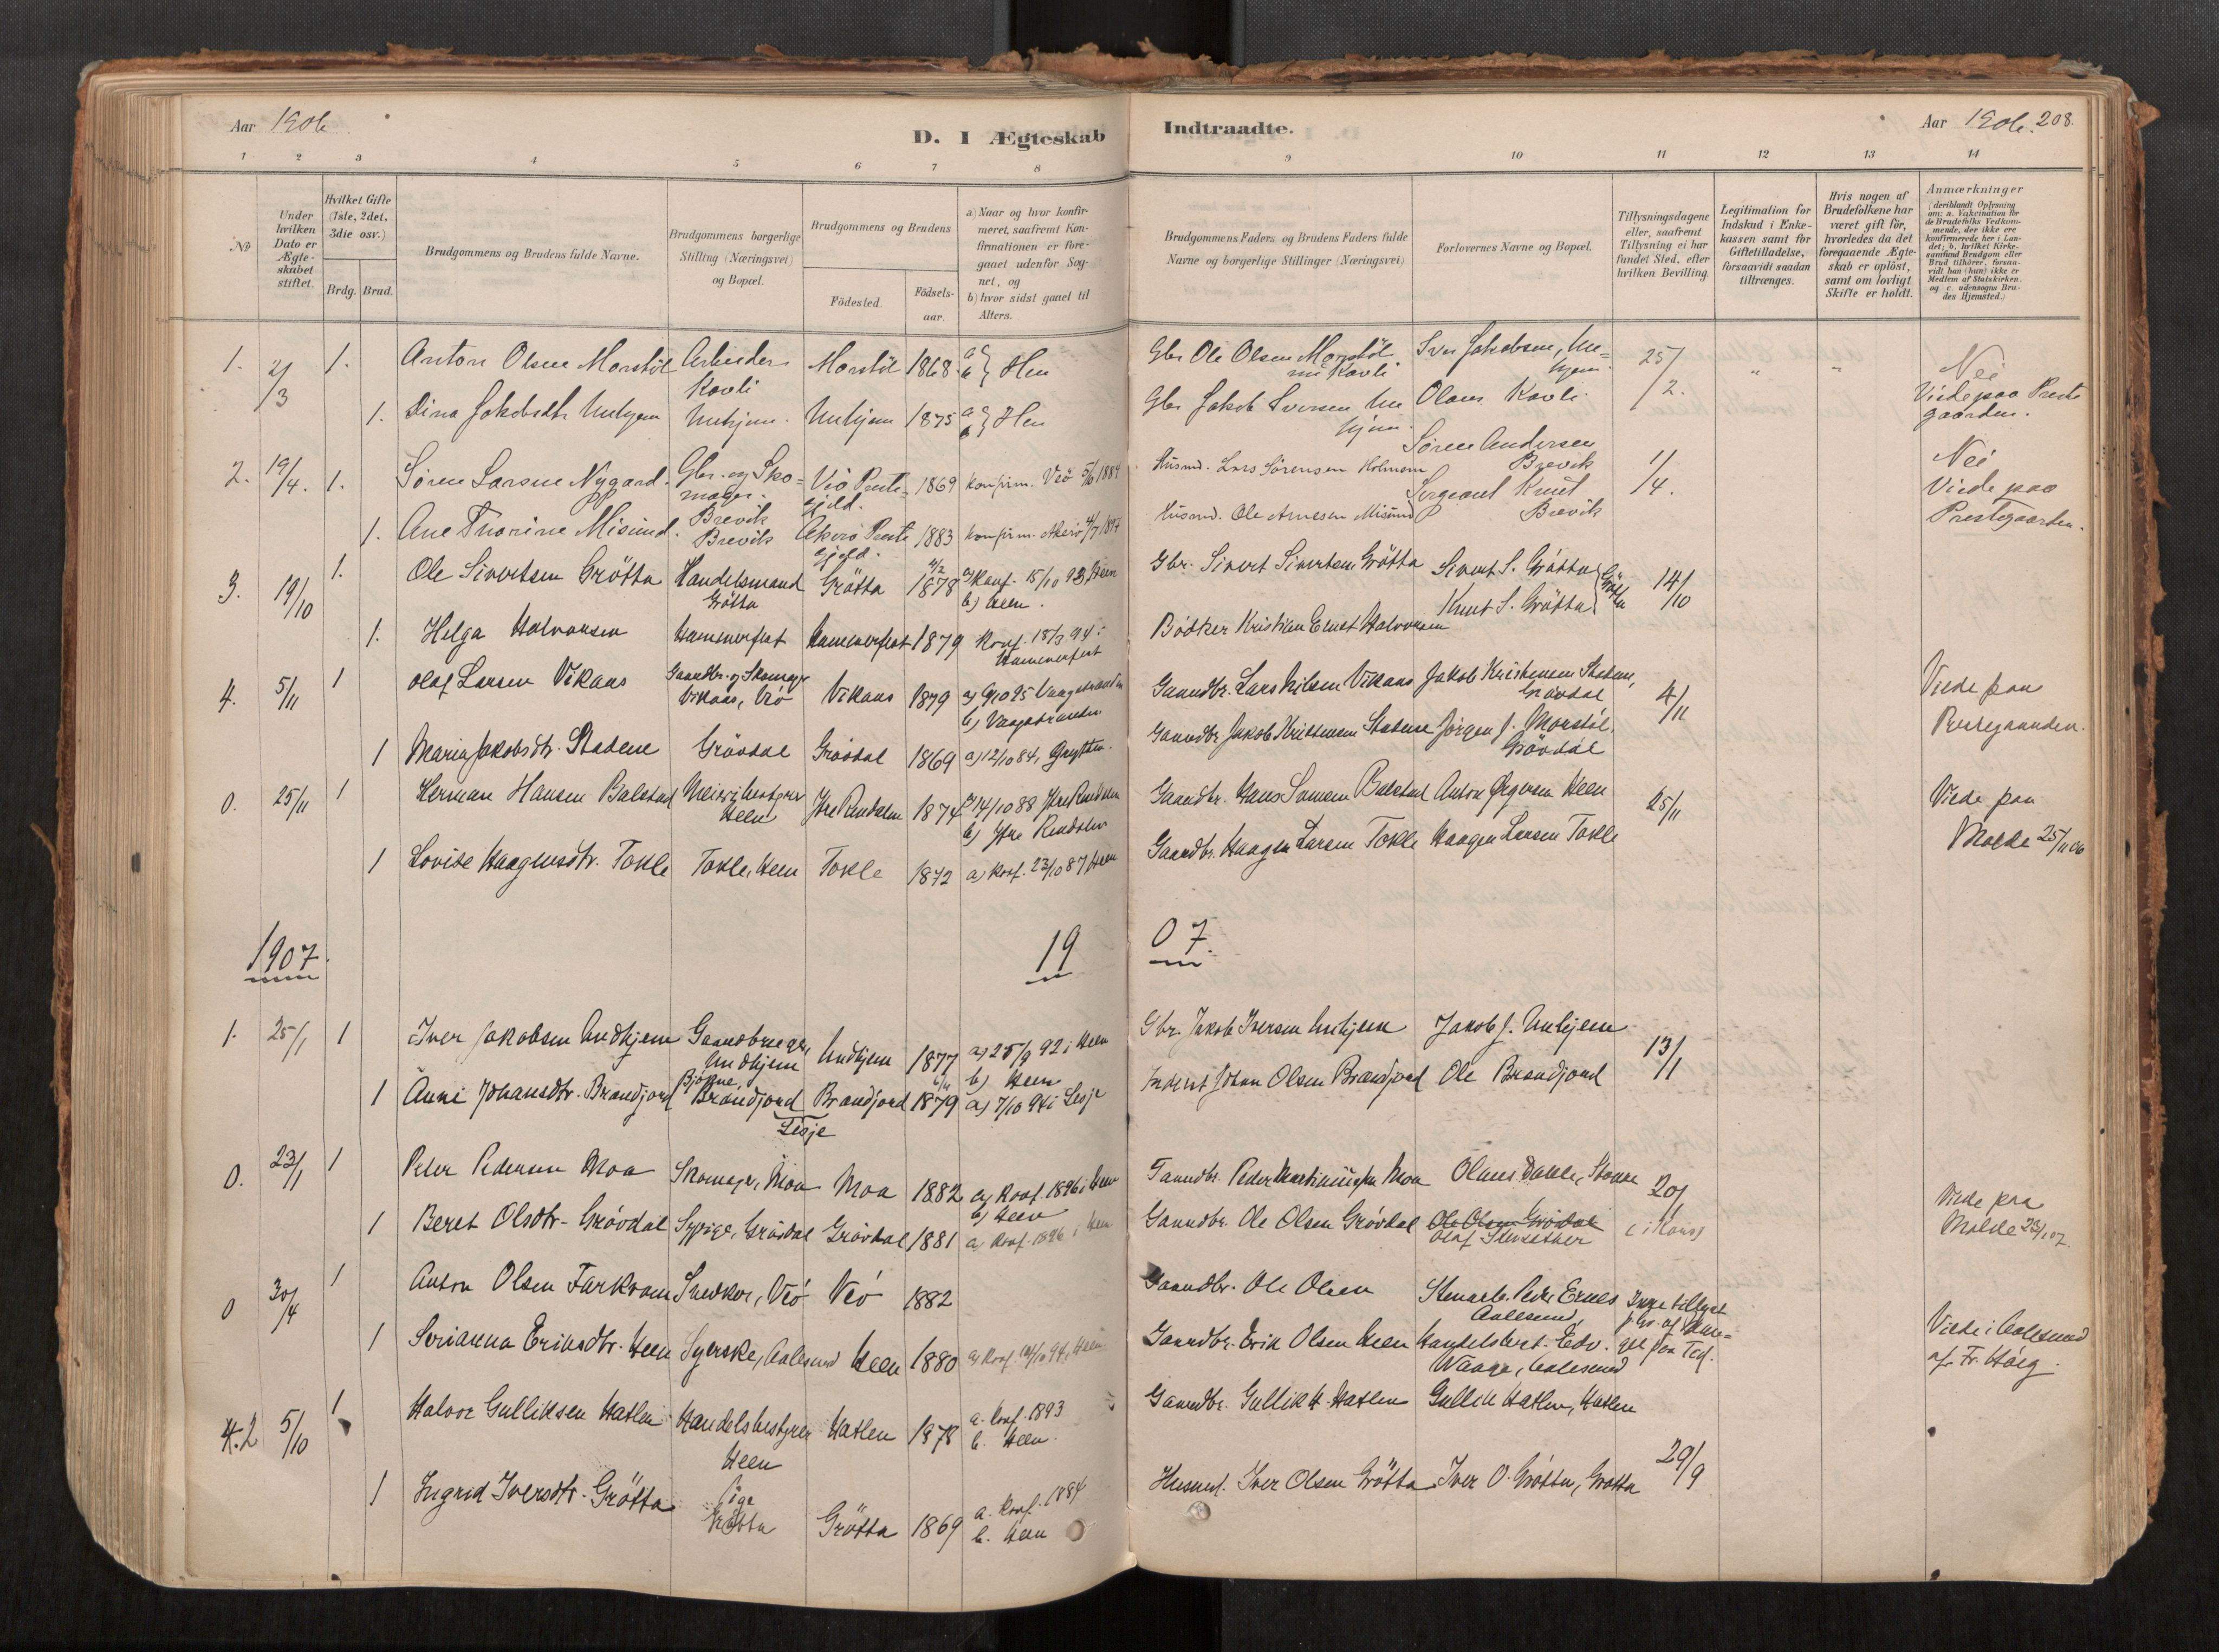 Aar 1906.
D. I Ægteskab
Indtraadte.
Aar 1906. 208.
1 2 3 4 5 6 7 8 9 10 11 12 13 14
No
Under hvilken Dato er Ægteskabet stiftet.
Hvilket Gifte (1ste, 2det, 3die osv.)
Brdg. Brud.
Brudgommens og Brudens fulde Navne.
Brudgommens borgerlige Stilling (Næringsvei) og Bopæl.
Brudgommens og Brudens
Födested.
Födselsaar.
a) Naar og hvor konfirmeret, saafremt Konfirmationen er foregaaet udenfor Sognet, og
b) hvor sidst gaaet til Alters.
Brudgommens Faders og Brudens Faders fulde Navne og borgerlige Stillinger (Næringsvei)
Forlovernes Navne og Bopæl.
Tillysningsdagene eller, saafremt Tillysning ei har fundet Sted, efter hvilken Bevilling.
Legitimation for Indskud i Enkekassen samt for Giftetilladelse, forsaavidt saadan tiltrænges.
Hvis nogen af Brudefolkene har været gift för, hvorledes da det foregaaende Ægteskab er oplöst, samt om lovligt Skifte er holdt.
Anmærkninger (deriblandt Oplysning om: a. Vakcination for de Brudefolks Vedkommende, der ikke ere konfirmerede her i Landet; b. hvilket Kirkesamfund Brudgom eller Brud tilhörer, forsaavidt han (hun) ikke er Medlem af Statskirken, og c. udensogns Brudes Hjemsted.)
1. 2/3 1. Anton Olsen Morstöl Arbeider Kavli Morstöl 1868 a b } Hen Gbr Ole Olsen Morstöl nu Kavli Iver Jakobsen, Unhjem 25/2. " " Nei
1. Dina Jakobsdtr Unhjem Unhjem. Unhjem 1875 a b } Hen Gbr Jakob Iversen Unhjem. Olaus Kavli. Viede paa Prestegaarden.
2. 19/4. 1. Sören Larsen Nygard. Gbr. og Skomager. Brevik Veö Prestegjeld. 1869 konfirm. Veö 5/10 1884 Husmd. Lars Sörensen Holmem Sören Andersen Brevik 1/4. Nei
1. Ane Thorine Misund. Brevik Akerö Prestegjeld. 1883 konfirm. Akerö Husmd. Ole Arnesen Misund Sergeant Knut Brevik Viede paa Prestegaarden.
3. 19/10 1. Ole Sivertsen Grötta Handelsmand Grötta Grötta 1878 a) Konf. 15/10 93 Heen b) Heen. Gbr. Sivert Sivertsen Grötta Sivert S. Grötta 14/10
1. Helga Halvorsen Hammerfest Hammerfest 1879 Konf. 18/3 94 i Hammerfest Bödker Kristian Ernst Halvorsen Knut S. Grötta } Grötta
4. 5/11 1 Olaf Larsen Vikaas Gaardbr. og Skomager Vikaas, Veö Vikaas 1879 a) 9/10 95 Vaagstranden b) Vaagstranden Gaardbr. Lars Nilsen Vikaas Jakob Kristensen Stadene, Grövdal 4/11 Viede paa Prestegaarden.
1 Maria Jakobsdtr. Stadene Grövdal Grövdal 1869 a) 12/10 84, Grytten. Gaardbr Jakob Kristensen Stadene Jörgen J. Morstöl, Grövdal
0. 25/11 1 Herman Hansen Balstad Meieribestyrer Heen Ytre Rendalen 1874 a) 14/10 88 Ytre Rendalen b) Ytre Rendalen Gaardbr. Hans Balstad Anton Heen 25/11 Viede paa
1 Lovise Haagensdtr. Tokle Tokle, Heen Tokle 1872 a) Konf. 23/10 87 Heen Gaardbr. Haagen Larsen Tokle Haagen Larsen Tokle Molde 25/11 06
1907.
19 07.
1. 25/1 1 Iver Jakobsen Undhjem Gaardbruger, Undhjem Undhjem 1877 a) 25/9 92 i Heen b) Heen Gbr. Jakob Iversen Unhjem Jakob J. Unhjem 13/1
1 Anne Johansdtr. Brandjord Brandjord Lesje Brandjord 1879 a) 7/10 94 i Lesje Johan Olsen Brandjord Ole Brandjord
0. 23/1 1 Peter Pedersen Moa Skomager, Moa Moa 1882 a) Konf. 1896 i Heen b) Heen Gaardbr. Peder Moa Olaus Dahle, 20/1 Viede paa
1 Beret Olsdtr. Grövdal Sypige, Grövdal Grövdal 1881 a) Konf. 1896 i Heen Gaardbr. Ole Olsen Grövdal Ole Olsen Grövdal Olaf Molde 23/1 07.
0 30/4 1 Anton Olsen Farkvam Snedker, Veö Veö 1882 Gaardbr. Ole Olsen Stenarb. Peder Aalesund Ikke tillyst
1 Serianna Eriksdtr. Heen Syerske, Aalesund Heen 1880 a) Konf. 14/10 94, Heen Gaardbr. Erik Olsen Heen Handelsbest. Edv. Waage, Aalesund p. Gr. af Mangel paa Tid. Viede i Aalesund af Fr.
4. 2 5/10 1 Halvor Gulliksen Hatlen Handelsbestyrer Heen Hatlen 1878 a. Konf. 1893 b. Heen Gaardbr. Gullik H. Hatlen Gullik Hatlen, Hatlen
1 Ingrid Iversdtr. Grötta Pige Grötta Grötta 1869 a. Konf. 1884 b. Heen Husmd. Iver Olsen Grötta Iver O. Grötta, Grötta 29/9